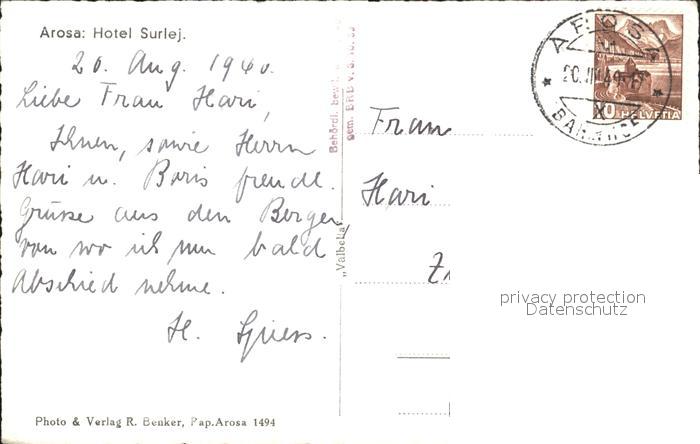 Arosa: Hotel Surlej.
20. Aug. 1940.
Liebe Frau Hari,
Ihnen, sowie Herrn
Hari u. Boris freudl.
Grüsse aus den Bergen,
von wo ich nun bald
Abschied nehme.
H. Spiess.
Photo & Verlag R. Benker, Pap.Arosa 1494
„Valbella"
Behördl. bewil
gem. BRB v. 3.
Frau
Hari
AROSA
BAHNHOF
HELVETIA
privacy protection
Datenschutz